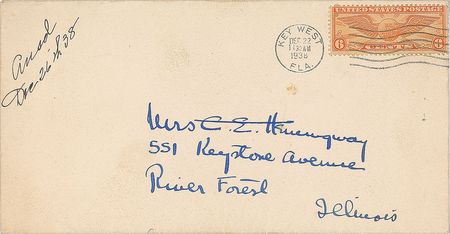 Ansd
Dec 26th 38
KEY WEST
DEC 22
11 30 AM
1938
FLA.
UNITED STATES POSTAGE
6 ¢
Mrs C. E. Hemingway
551 Keystone Avenue
River Forest
Illinois